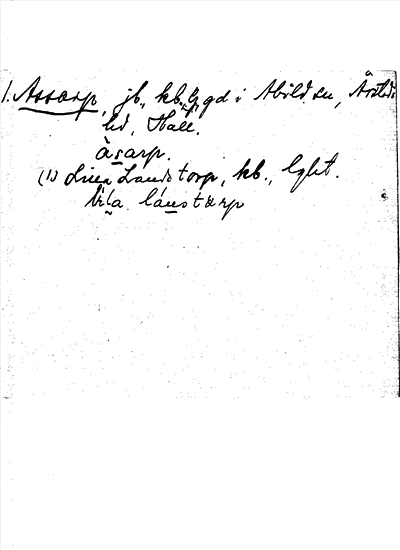 1. Assarp, jb., kb., gd i Abild sn, Årstads
hd, Hall.
àsarp.
(1) Lilla Landstorp, kb., lght.
lìla lánstärp